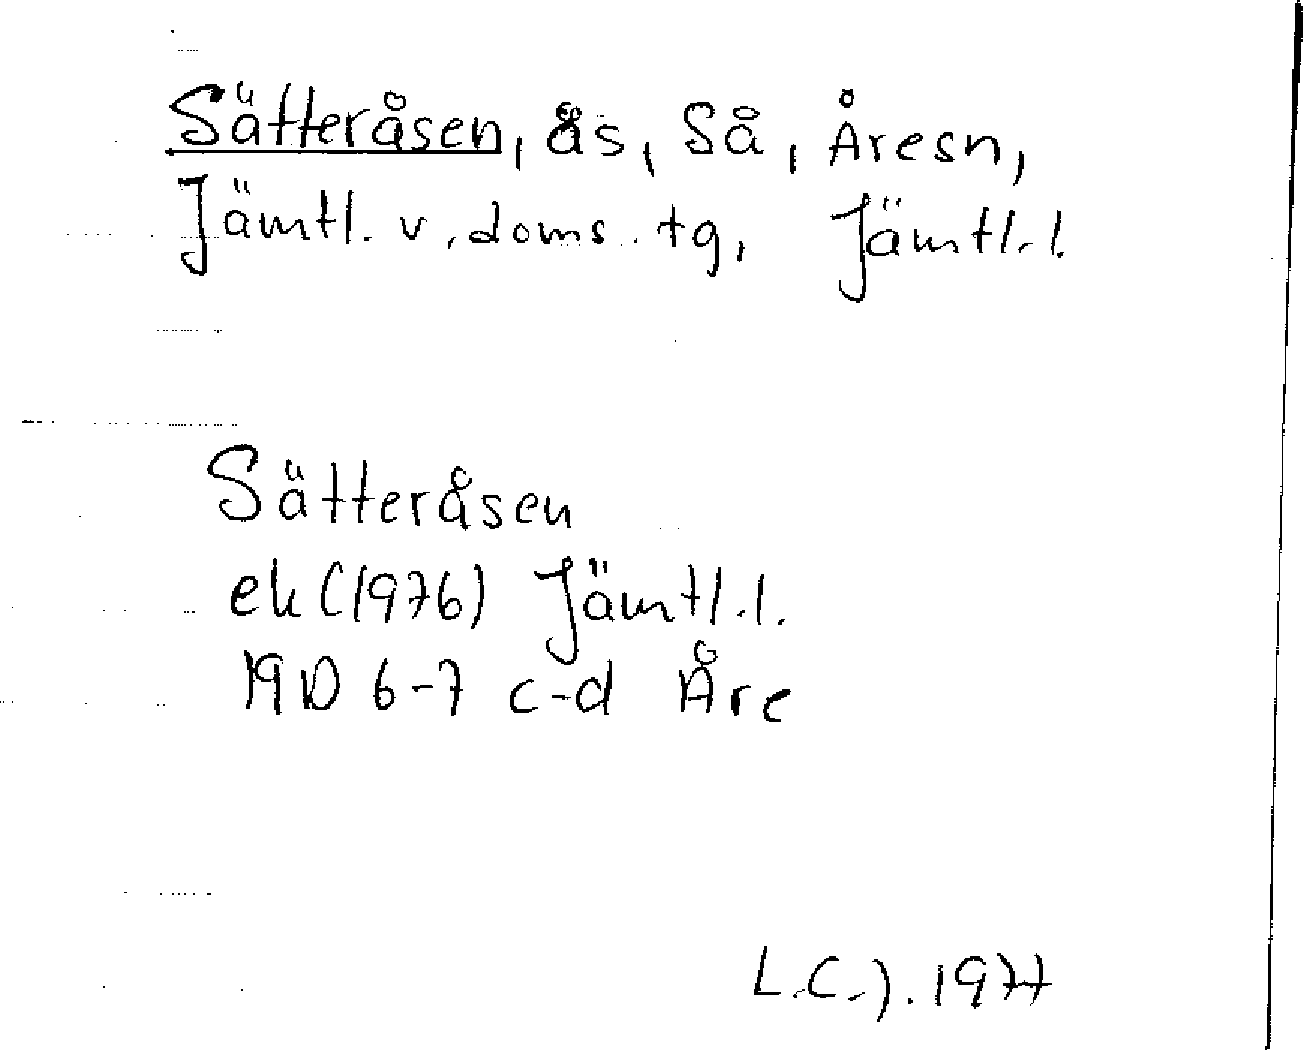 Sätteråsen, ås, Så, Åresn,
Jämtl. v. doms. tg, Jämtl. l.
Sätteråsen
ek (1976) Jämtl. l.
19D 6-7 c-d Åre
L.C.J. 1977